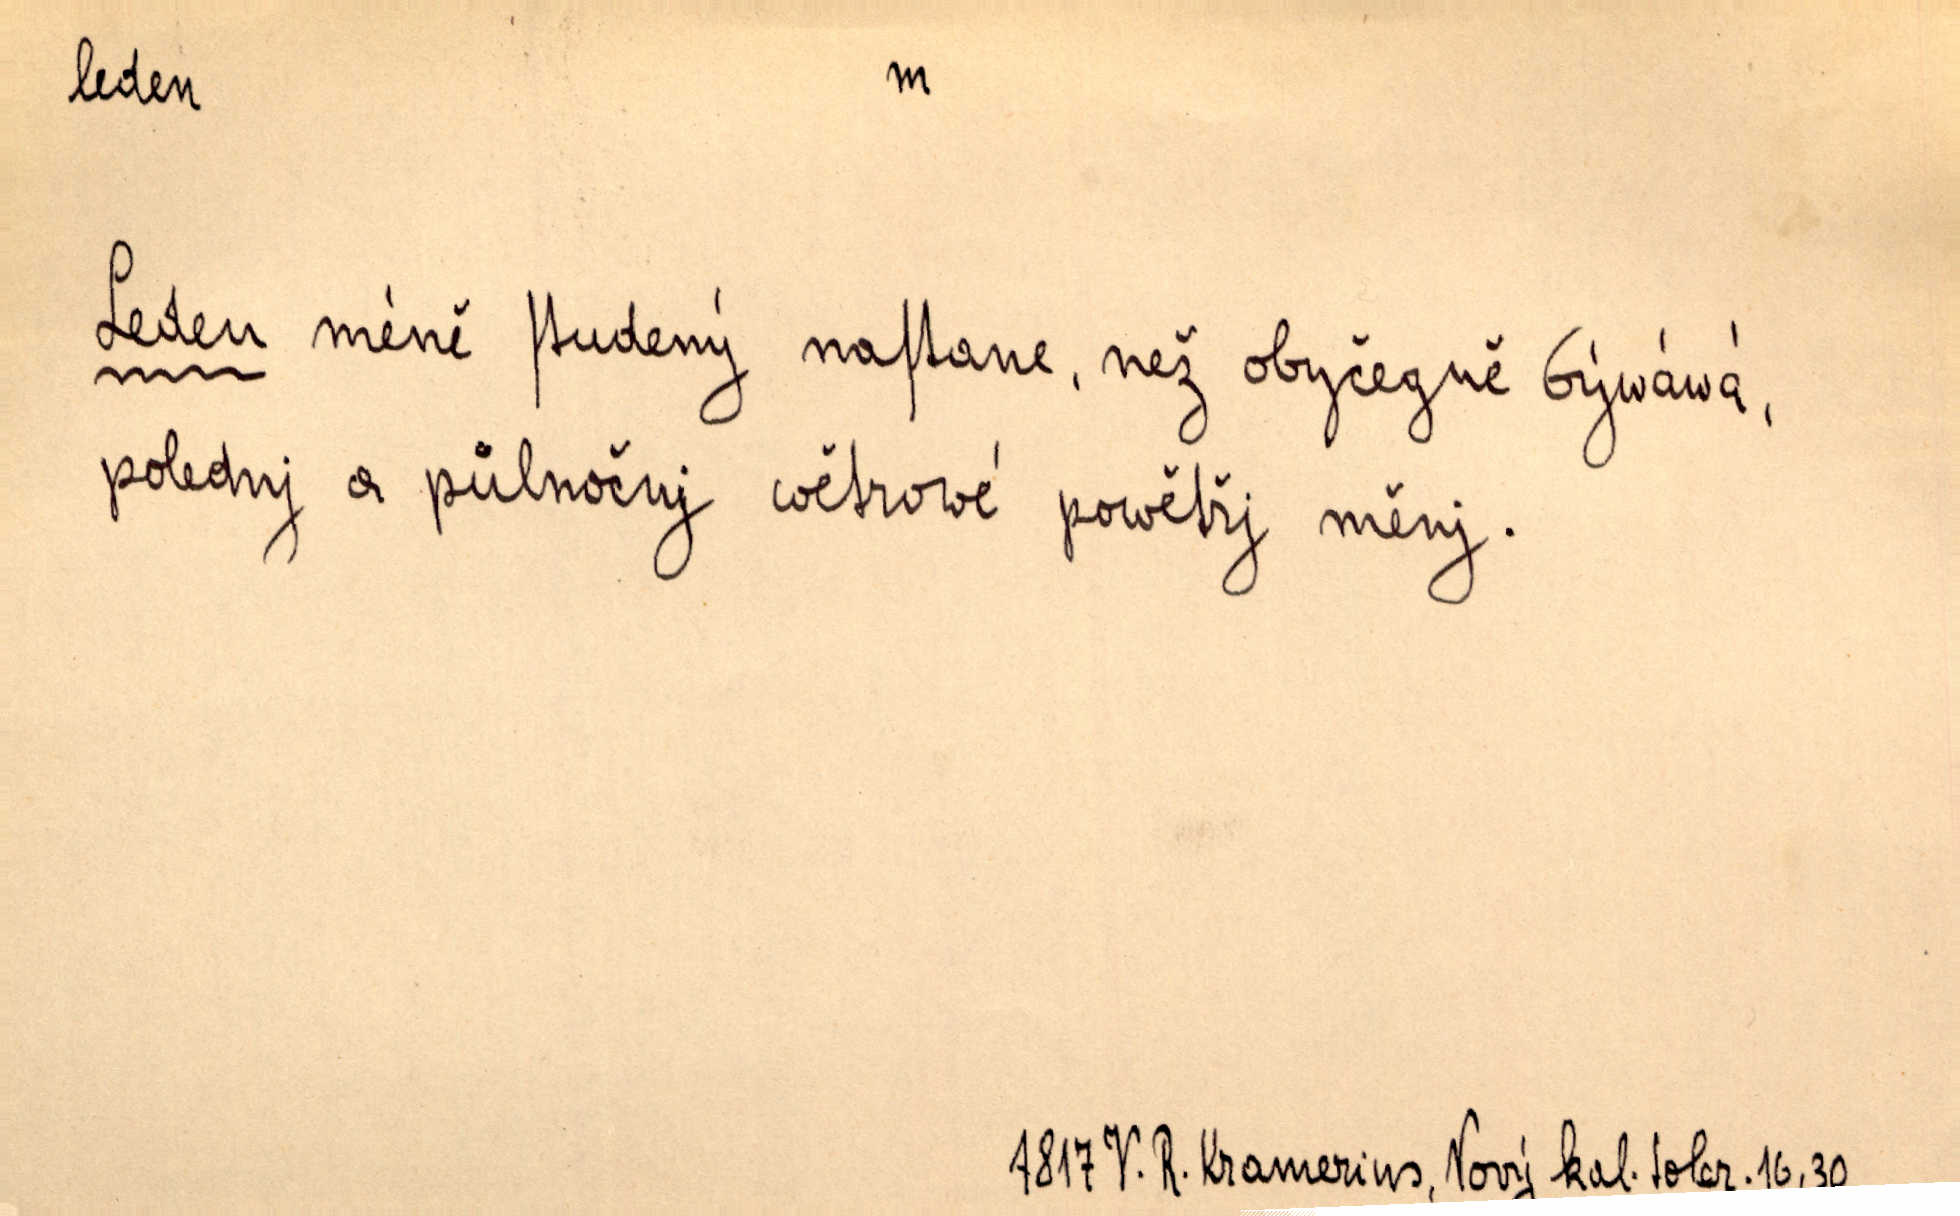 leden m
Leden méně ſtudený naſtane, než obyčegně býwáwá,
polednj a půlnočnj wětrowé powětřj měnj.
1817 V. R. Kramerius, Nový kal. toler. 16,30